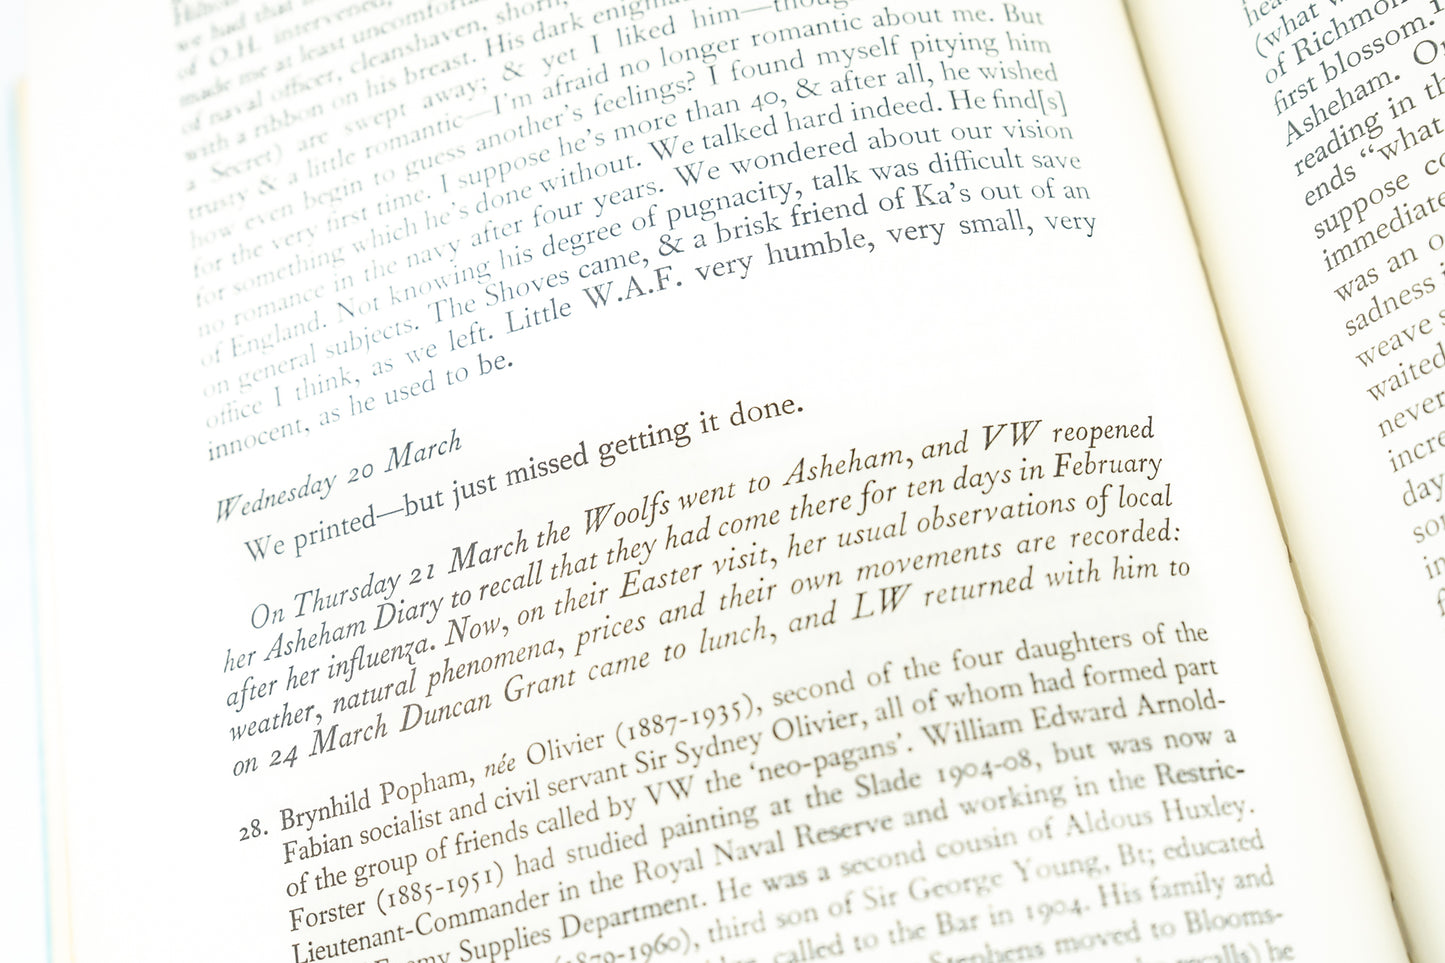 we had that
of O.H. intervened,
made me at least uncomfor
of naval officer, cleanshaven, shorn,
with a ribbon on his breast. His dark enigma
a Secret) are swept away; & yet I liked him—thou
trusty & a little romantic—I'm afraid no longer romantic about me. But
how even begin to guess another's feelings? I found myself pitying him
for the very first time. I suppose he's more than 40, & after all, he wished
for something which he's done without. We talked hard indeed. He find[s]
no romance in the navy after four years. We wondered about our vision
of England. Not knowing his degree of pugnacity, talk was difficult save
on general subjects. The Shoves came, & a brisk friend of Ka's out of an
office I think, as we left. Little W.A.F. very humble, very small, very
innocent, as he used to be.
Wednesday 20 March
We printed—but just missed getting it done.
On Thursday 21 March the Woolfs went to Asheham, and VW reopened
her Asheham Diary to recall that they had come there for ten days in February
after her influenza. Now, on their Easter visit, her usual observations of local
weather, natural phenomena, prices and their own movements are recorded:
on 24 March Duncan Grant came to lunch, and LW returned with him to
28. Brynhild Popham, née Olivier (1887-1935), second of the four daughters of the
Fabian socialist and civil servant Sir Sydney Olivier, all of whom had formed part
of the group of friends called by VW the 'neo-pagans'. William Edward Arnold-
Forster (1885-1951) had studied painting at the Slade 1904-08, but was now a
Lieutenant-Commander in the Royal Naval Reserve and working in the Restric-
Supplies Department. He was a second cousin of Aldous Huxley.
-1960), third son of Sir George Young, Bt; educated
called to the Bar in 1904. His family and
Stephens moved to Blooms-
he
(what
of Richmon
first blossom.
Asheham. O
reading in th
ends "what
suppose co
immediate
was an o
sadness i
weave s
waited
never
incre
day
so
in